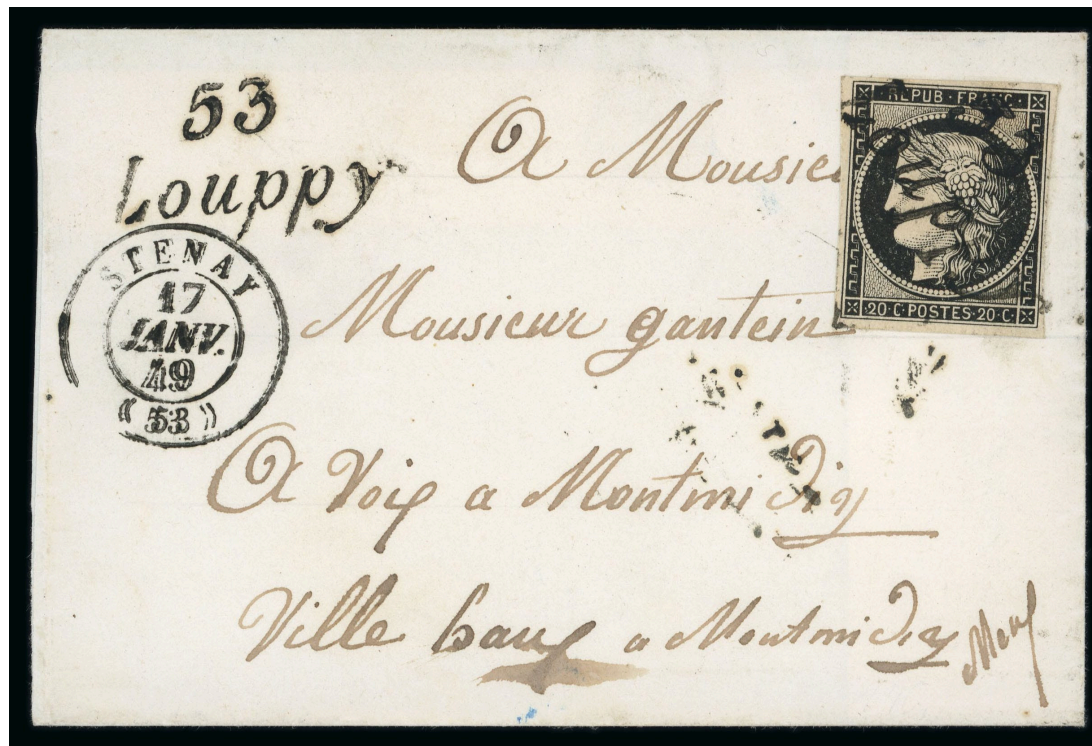 53
Louppy
STENAY
17
JANV.
49
(53)
REPUB·FRANC·
20·C·POSTES·20·C·
A Monsieur
Monsieur gantein
A Voix a Montmidiy
Ville haux a Montmidiy